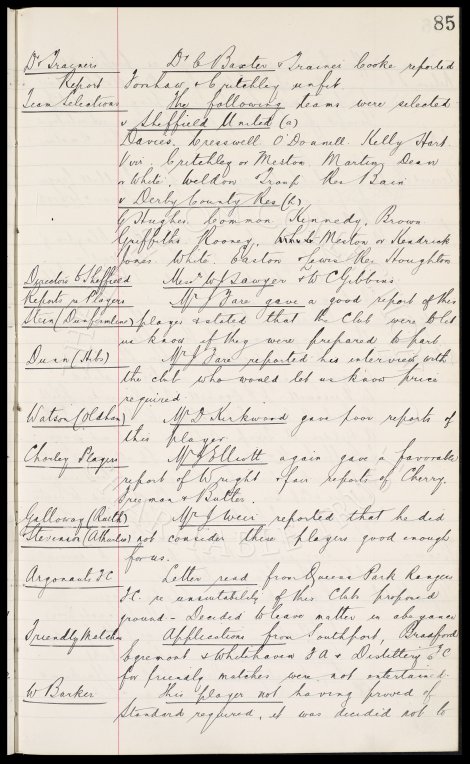 85
Dr & Trainers Dr C Baxter & Trainer Cooke reported
Report Torshaw & Critchley unfit
Team Selections The following teams were selected
v Sheffield United (a)
Davies, Cresswell O'Donnell. Kelly Hart.
Virr, Critchley or Meston. Martin, Dean
or White, Weldon Troup Res Bain
v Derby County Res (h)
G Hughes Common Kennedy, Brown
Griffiths, Rooney, White Meston or Kendrick
Jones White. Easton Lewis Res Houghton
Directors to Sheffield Messrs W J Sawyer & W C Gibbins
Reports re Players Mr J Fare gave a good report of this
Stein (Dunfermline) player & stated that the Club were to let
us know if they were prepared to part
Dunn (Hibs) Mr J Fare reported his interview with
the club who would let us know price
required.
Watson (Oldham) Mr D Kirkwood gave poor reports of
this player.
Chorley Players Mr J Elliott again gave a favorable
report of Wright & fair reports of Cherry
Freeman & Butler.
Galloway (Raith) Mr J Weir reported that he did
Stevenson (Arthurlie) not consider these players good enough
for us.
Argonauts FC Letter read from Queens Park Rangers
F.C. re unsuitability of this Clubs proposed
ground - Decided to leave matter in abeyance
Friendly Matches Applications from Southport, Bradford
Egremont & Whitehaven FA & Distillery FC
for friendly matches were not entertained.
W Barker This player not having proved of
standard required, it was decided not to